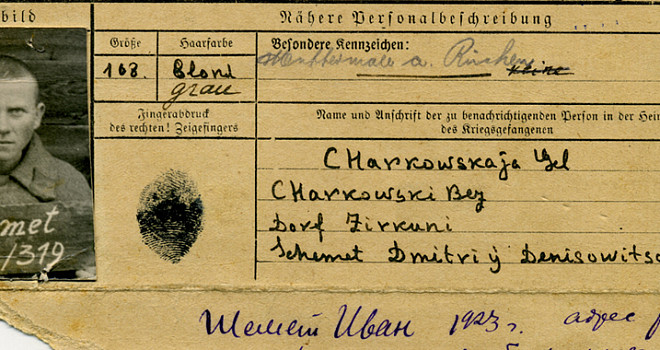 bild
Nähere Personalbeschreibung
Größe
Haarfarbe
Besondere Kennzeichen:
168.
Blond
grau
Muttermale a. Rücken
keine
Fingerabdruck
des rechten! Zeigefingers
Name und Anschrift der zu benachrichtigenden Person in der Hei
des Kriegsgefangenen
CHarkowskaja Gel
CHarkowski Bez
Dorf Zirkuni
Schemet Dmitriÿ Denisowitsc
met
/319
Шемет Иван 1923 г. адрес р